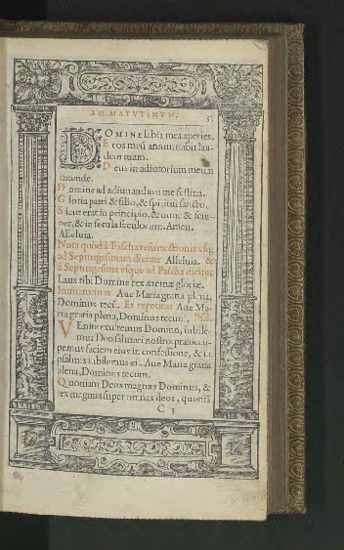 AD MATVTINVM. 37
DOMINE labia mea aperies.
Et os meũ annunciabit lau-
dem tuam.
Deus in adiutorium meum
intende.
Domine ad adiuuandum me festina.
Gloria patri & filio, & spiritui sancto.
Sicut erat in principio, & nunc & sem-
per, & in secula seculorum. Amen.
Alleluia.
Nota quòd à Pascha resurrectionis vsq;
ad Septuagesimam dicitur Alleluia. &
à Septuagesima vsque ad Pascha dicitur
Laus tibi Domine rex æternæ gloriæ.
Inuitatorium. Aue Maria gratia plena,
Dominus tecũ. Et repetitur Aue Ma-
ria gratia plena, Dominus tecum.
VEnite exultemus Domino, iubile-
mus Deo salutari nostro: præoccu-
pemus faciem eius in confessione, & in
psalmis iubilemus ei. Aue Maria gratia
plena, Dominus tecum.
Quoniam Deus magnus Dominus, &
rex magnus super omnes deos, quoniã
C 3